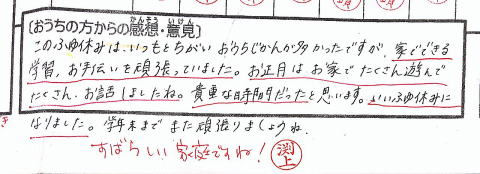 〔おうちの方からの感想・意見〕
このふゆ休みは、いつもとちがい おうちじかんが多かったですが、家でできる
学習、お手伝いを頑張っていました。お正月は お家で たくさん遊んで
たくさん お話ししましたね。貴重な時間だったと思います。いいふゆ休みに
なりました。学年末まで また頑張りましょうね。
すばらしい家庭ですね！ 渕上